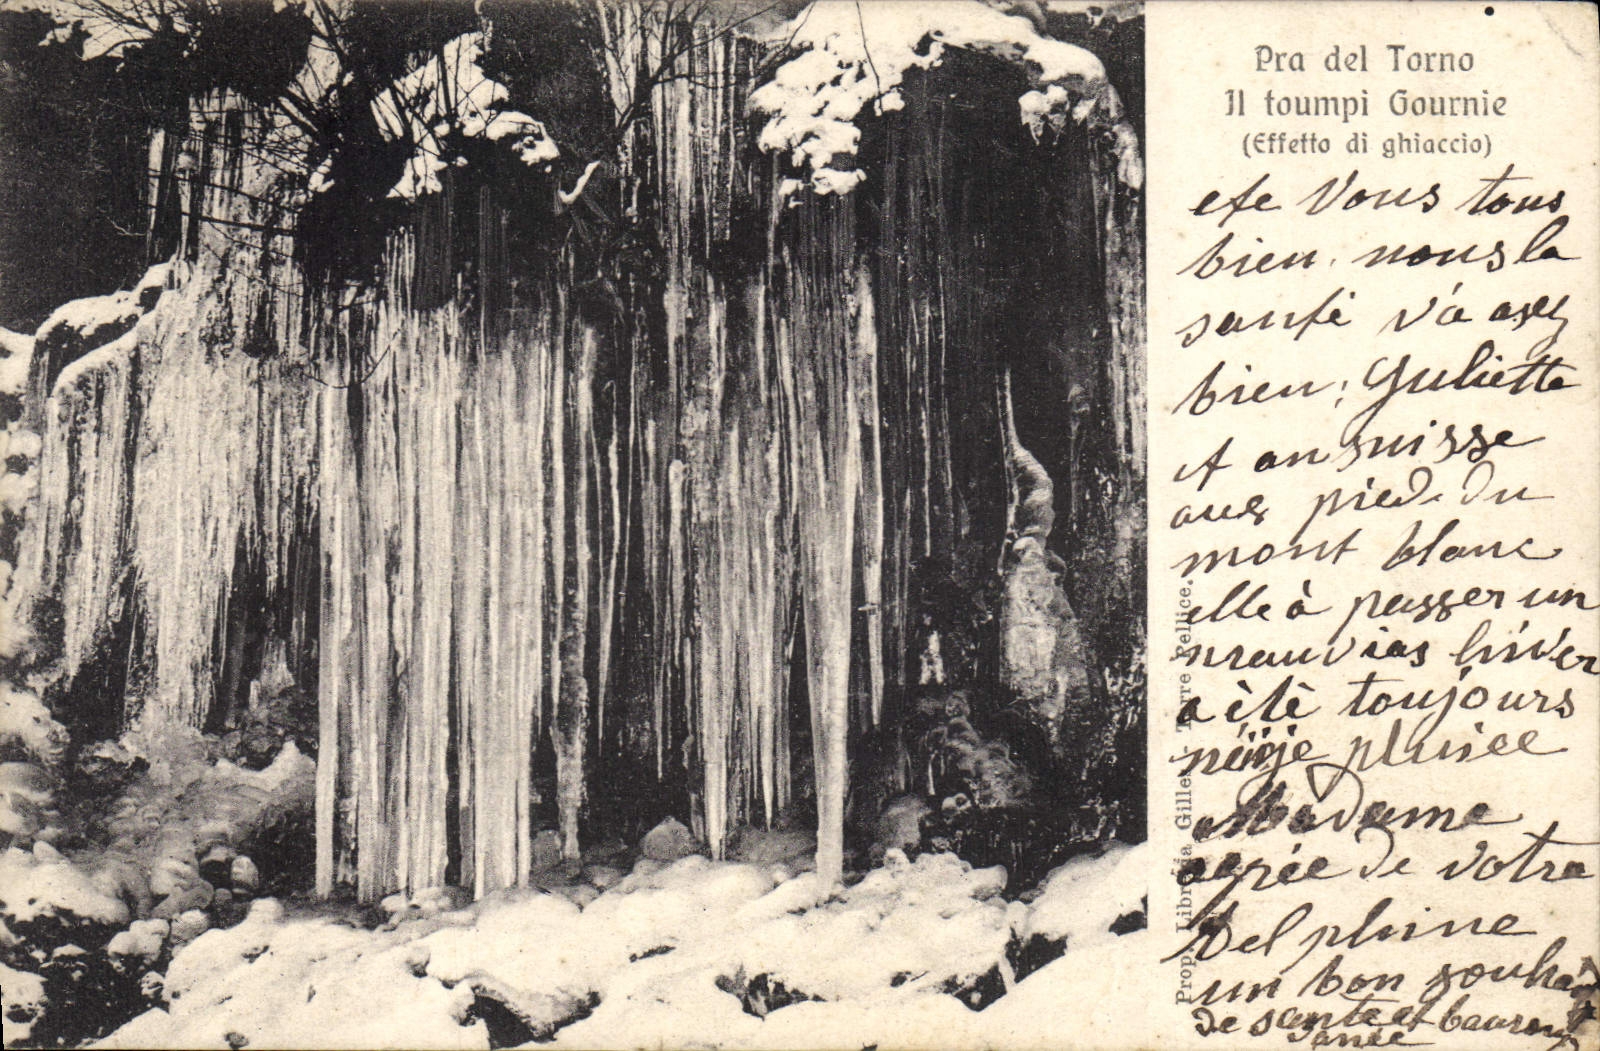 Pra del Torno
Il toumpi Gournie
(Effetto di ghiaccio)
ete Vous tous
bien. nous la
santé v'a asez
bien; Guliette
et an suisse
aux pied du
mont blanc
elle à passer un
mauvias hiver
a été toujours
neije pluiee
Madame
agrée de votre
Delphine
un bon souhait
de sante et
année
Propr. Libreria Gillet - Torre Pellice.